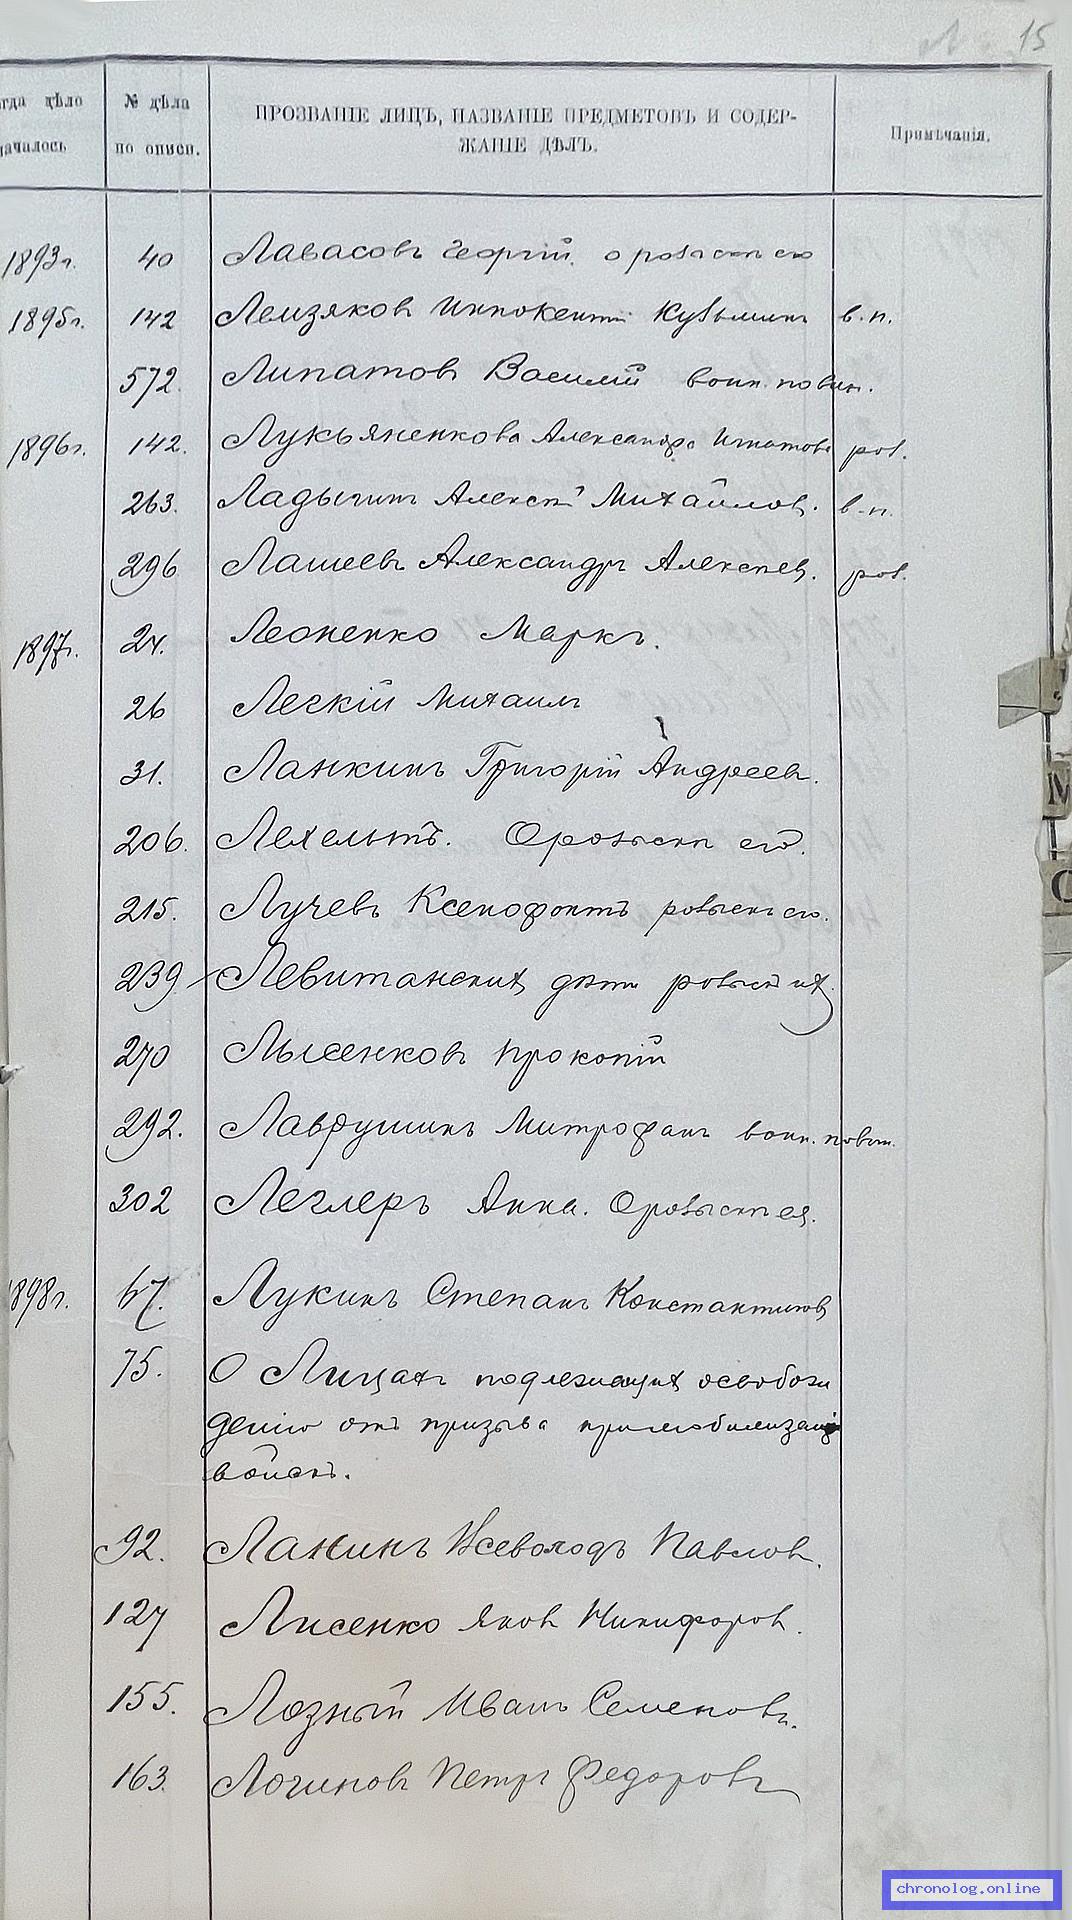 15
огда дѣло началось
№ дѣла по описи.
ПРОЗВАНІЕ ЛИЦЪ, НАЗВАНІЕ ПРЕДМЕТОВЪ И СОДЕР-
ЖАНІЕ ДѢЛЪ.
Примѣчанія.
1893г. 40 Лавасовъ Георгій. о розыскѣ его
1895г. 142 Лемзяковъ Иннокентій Кузьминъ в.п.
572. Липатовъ Василій воин. повин.
1896г. 142. Лукьяненкова Александра Игнатова роз.
263. Ладыгинъ Алексѣй Михайлов. в.п.
296 Лашеевъ Александръ Алексѣев. роз.
1897г. 24. Леоненко Маркъ.
26 Легкій Михаилъ
31. Ланкинъ Григорій Андреевъ.
206. Лехельтъ. О розыскѣ его.
215. Лучевъ Ксенофонтъ розыскъ его.
239 Левитанскихъ дѣти розыскъ ихъ.
270 Лысенковъ Прокопій
292. Лаврушинъ Митрофанъ воин. повин.
302 Леглеръ Анна. О розыскѣ ея.
1898г. 67. Лукинъ Степанъ Константиновъ
75. О Лицахъ подлежащихъ освобож
денію отъ призыва при мобилизаціи
войскъ.
92. Ланинъ Всеволодъ Павловъ.
127 Лисенко Яковъ Никифоровъ.
155. Лозный Иванъ Семеновъ.
163. Логиновъ Петръ Федоровъ
М
С
chronolog.online